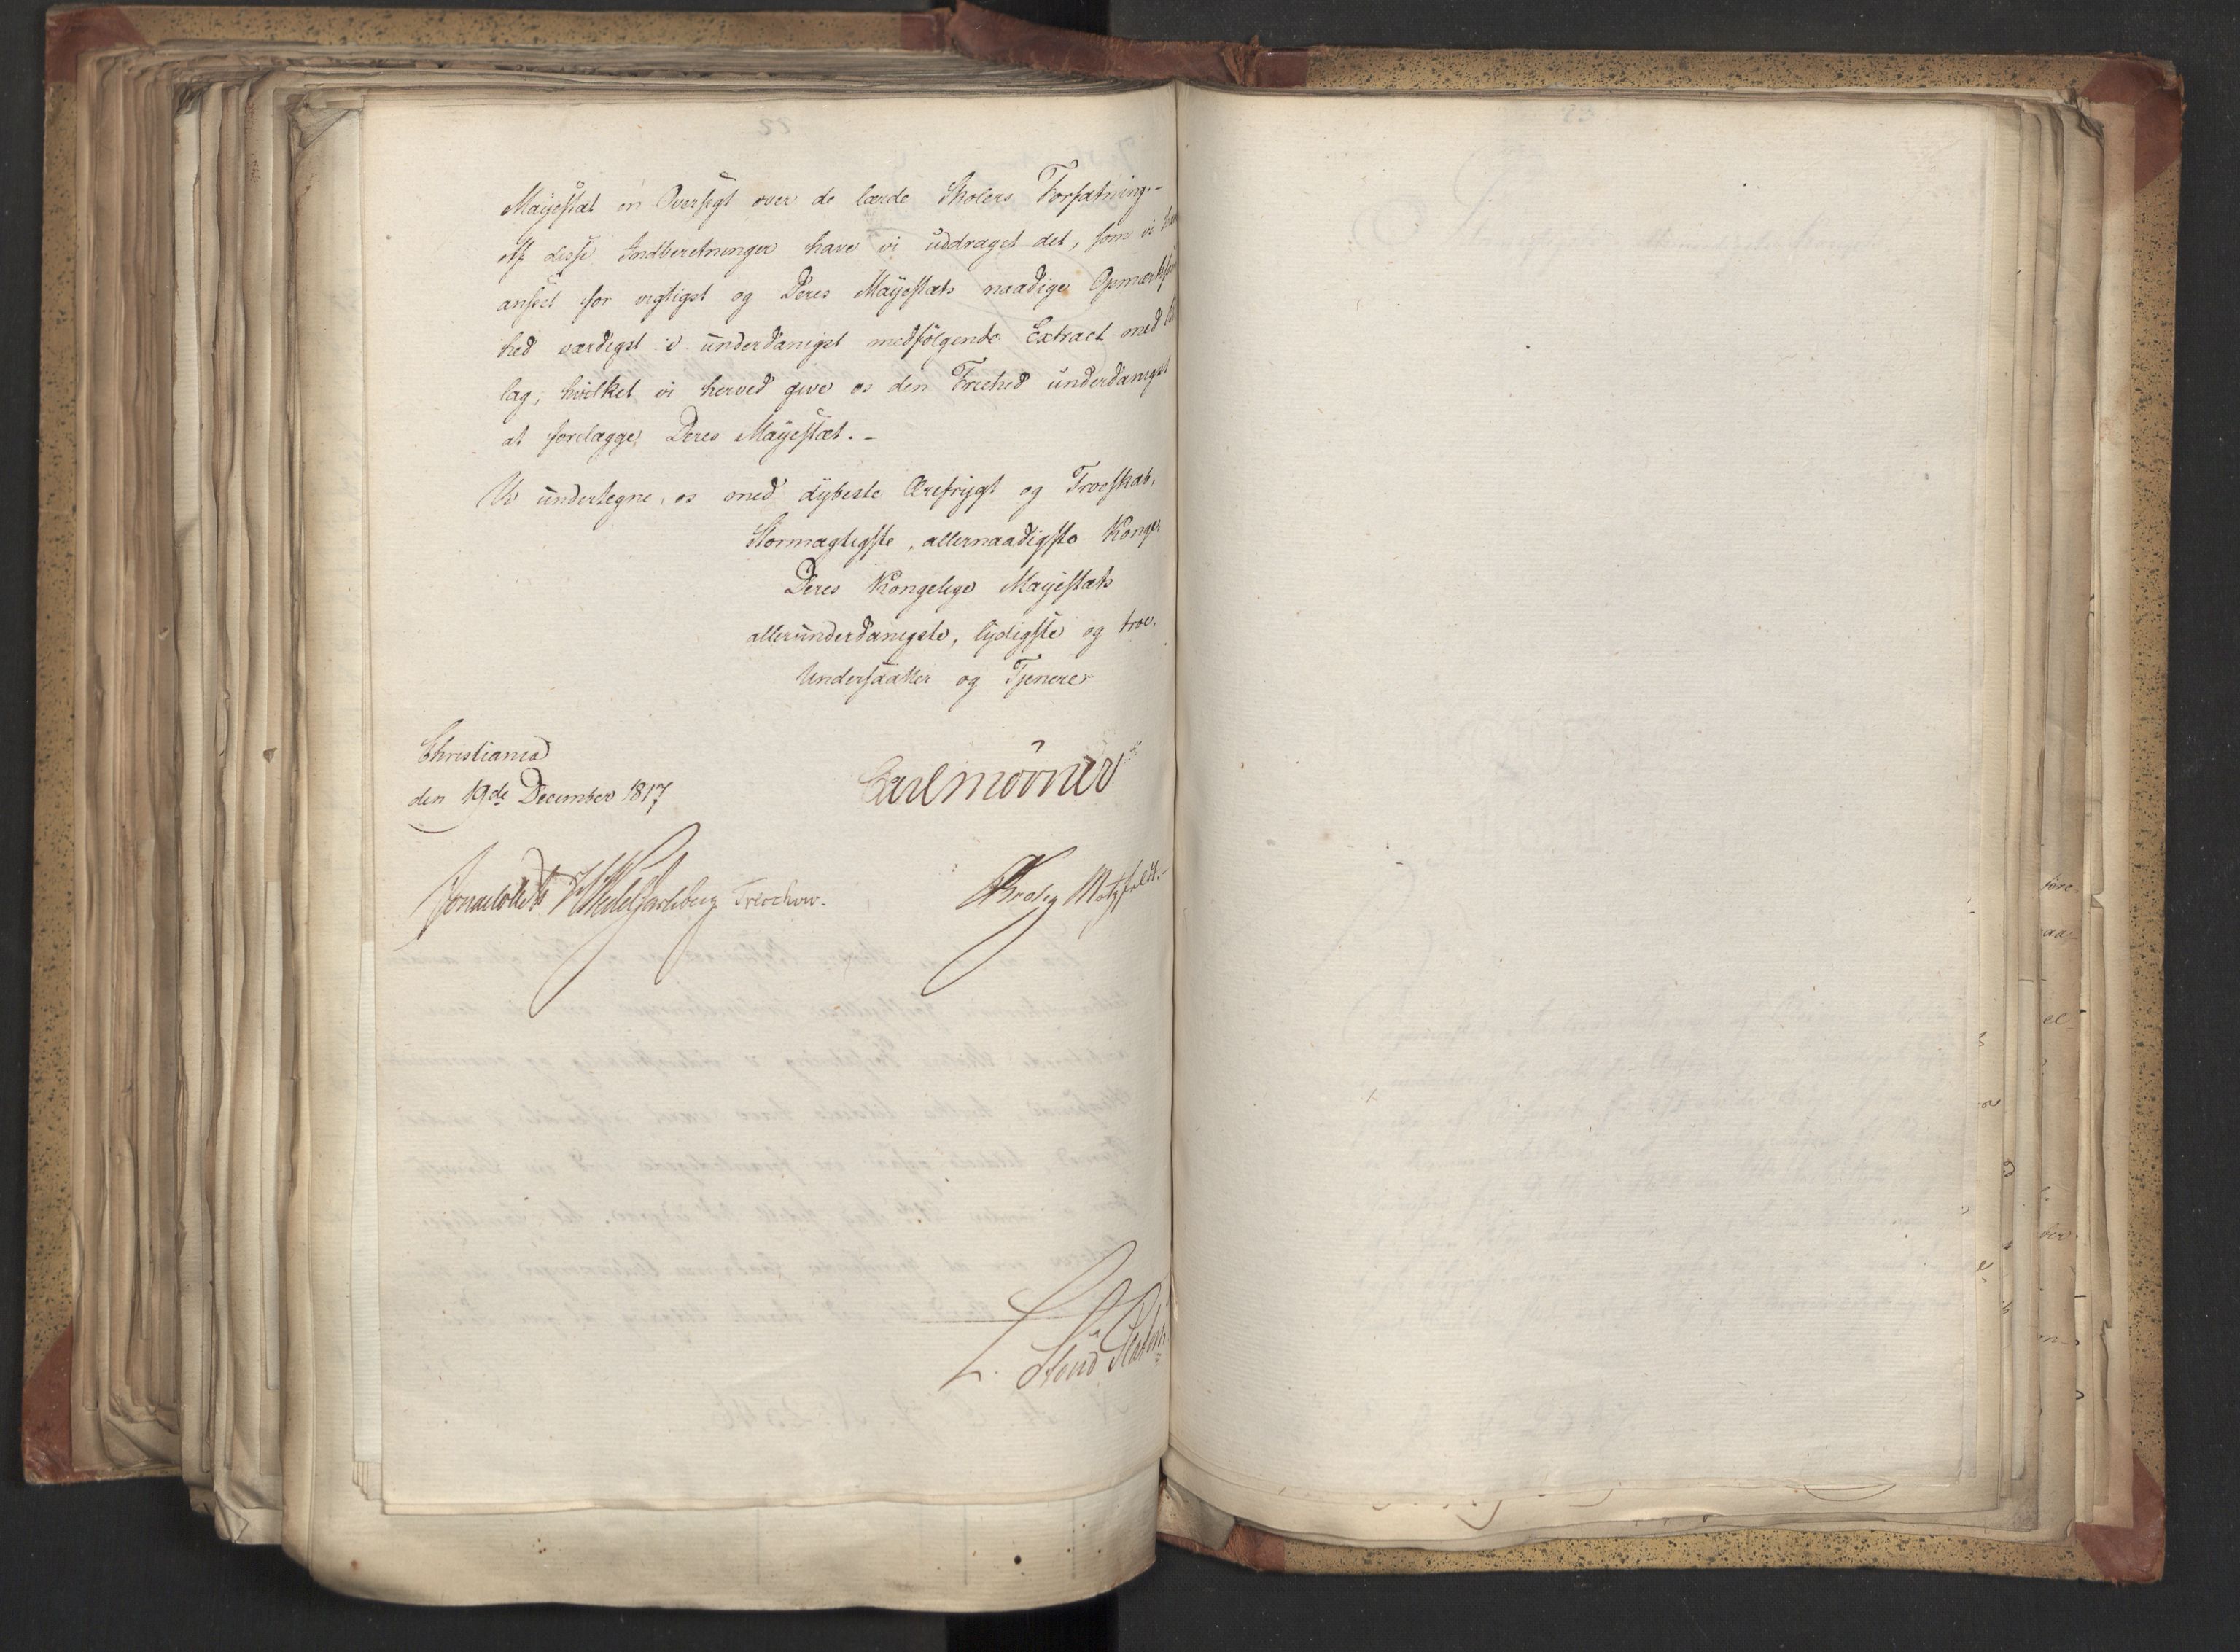 Mayestæt en Oversigt over de lærde Skolers Forfatning.-
Af disse Indberetninger have vi uddraget det, som vi
anseet for vigtigst og Deres Mayestæts naadige
hed værdigst i underdanigst medfölgende Extract med
lag, hvilket vi herved give os den Friehed underdanigst
at forelægge Deres Mayestæt.-
Vi undertegne os med dybeste Ærefrygt og Troeskab,
Stormægtigste, allernaadigste Konge,
Deres Kongelige Mayestæts
allerunderdanigste, lydigste og troe
Undersaatter og Tjenere
Christiania
den 19de December 1817
Carl Mörner
Jonas Collett HWedelJarlsberg Treschow.
Krohg Motzfeldt.-